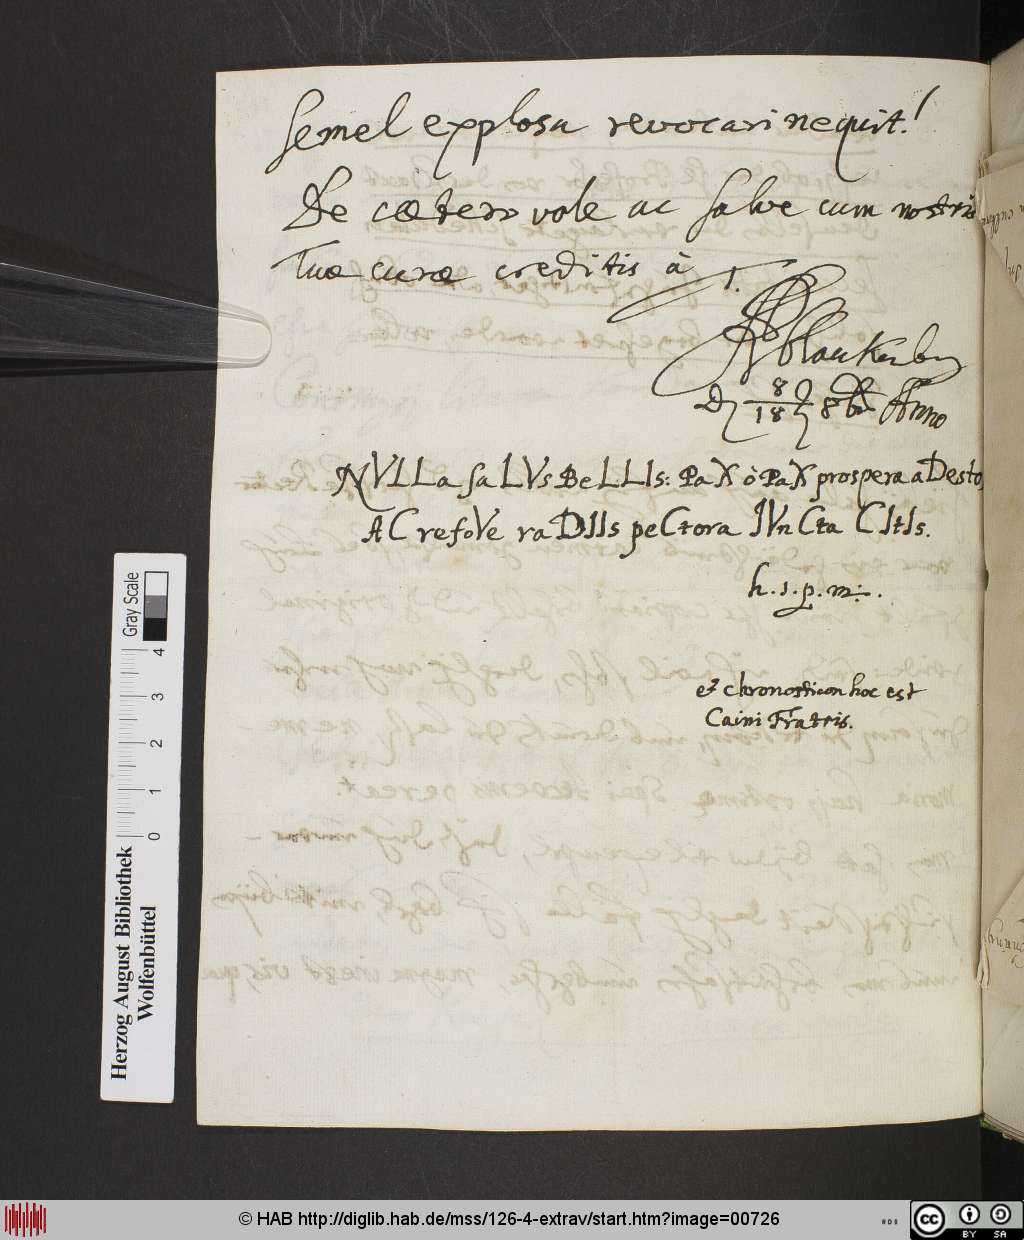 Semel explosa revocari nequit!
De cætero vale ac salve cum nostris
Tuæ curæ creditis à T.
Blankenb
8
18
8br Anno
NVLLa saLVs BeLLIs: PaX ò PaX prospera aDesto,
AC refoVe raDIIs peCtora IVnCta CItIs.
h. s. p. m.
& chronosticon hoc est
Caini Fratris.
Gray Scale
4
3
2
1
0
Herzog August Bibliothek
Wolfenbüttel
© HAB http://diglib.hab.de/mss/126-4-extrav/start.htm?image=00726
cc BY SA